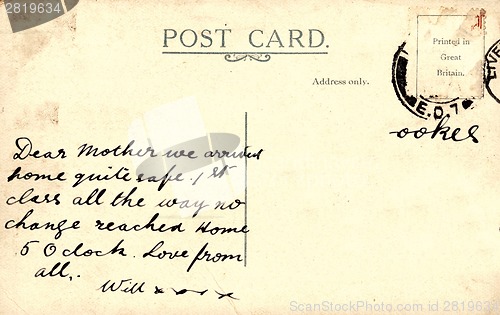 2819634
POST CARD.
Printed in
Great
Britain.
Address only.
LIVE
E.D.7
ookes
Dear Mother we arrived
home quite safe. 1st
class all the way no
change reached Home
5 O clock. Love from
all.
Will x x x x
© Stockfresh.com/SandraLise
2819634